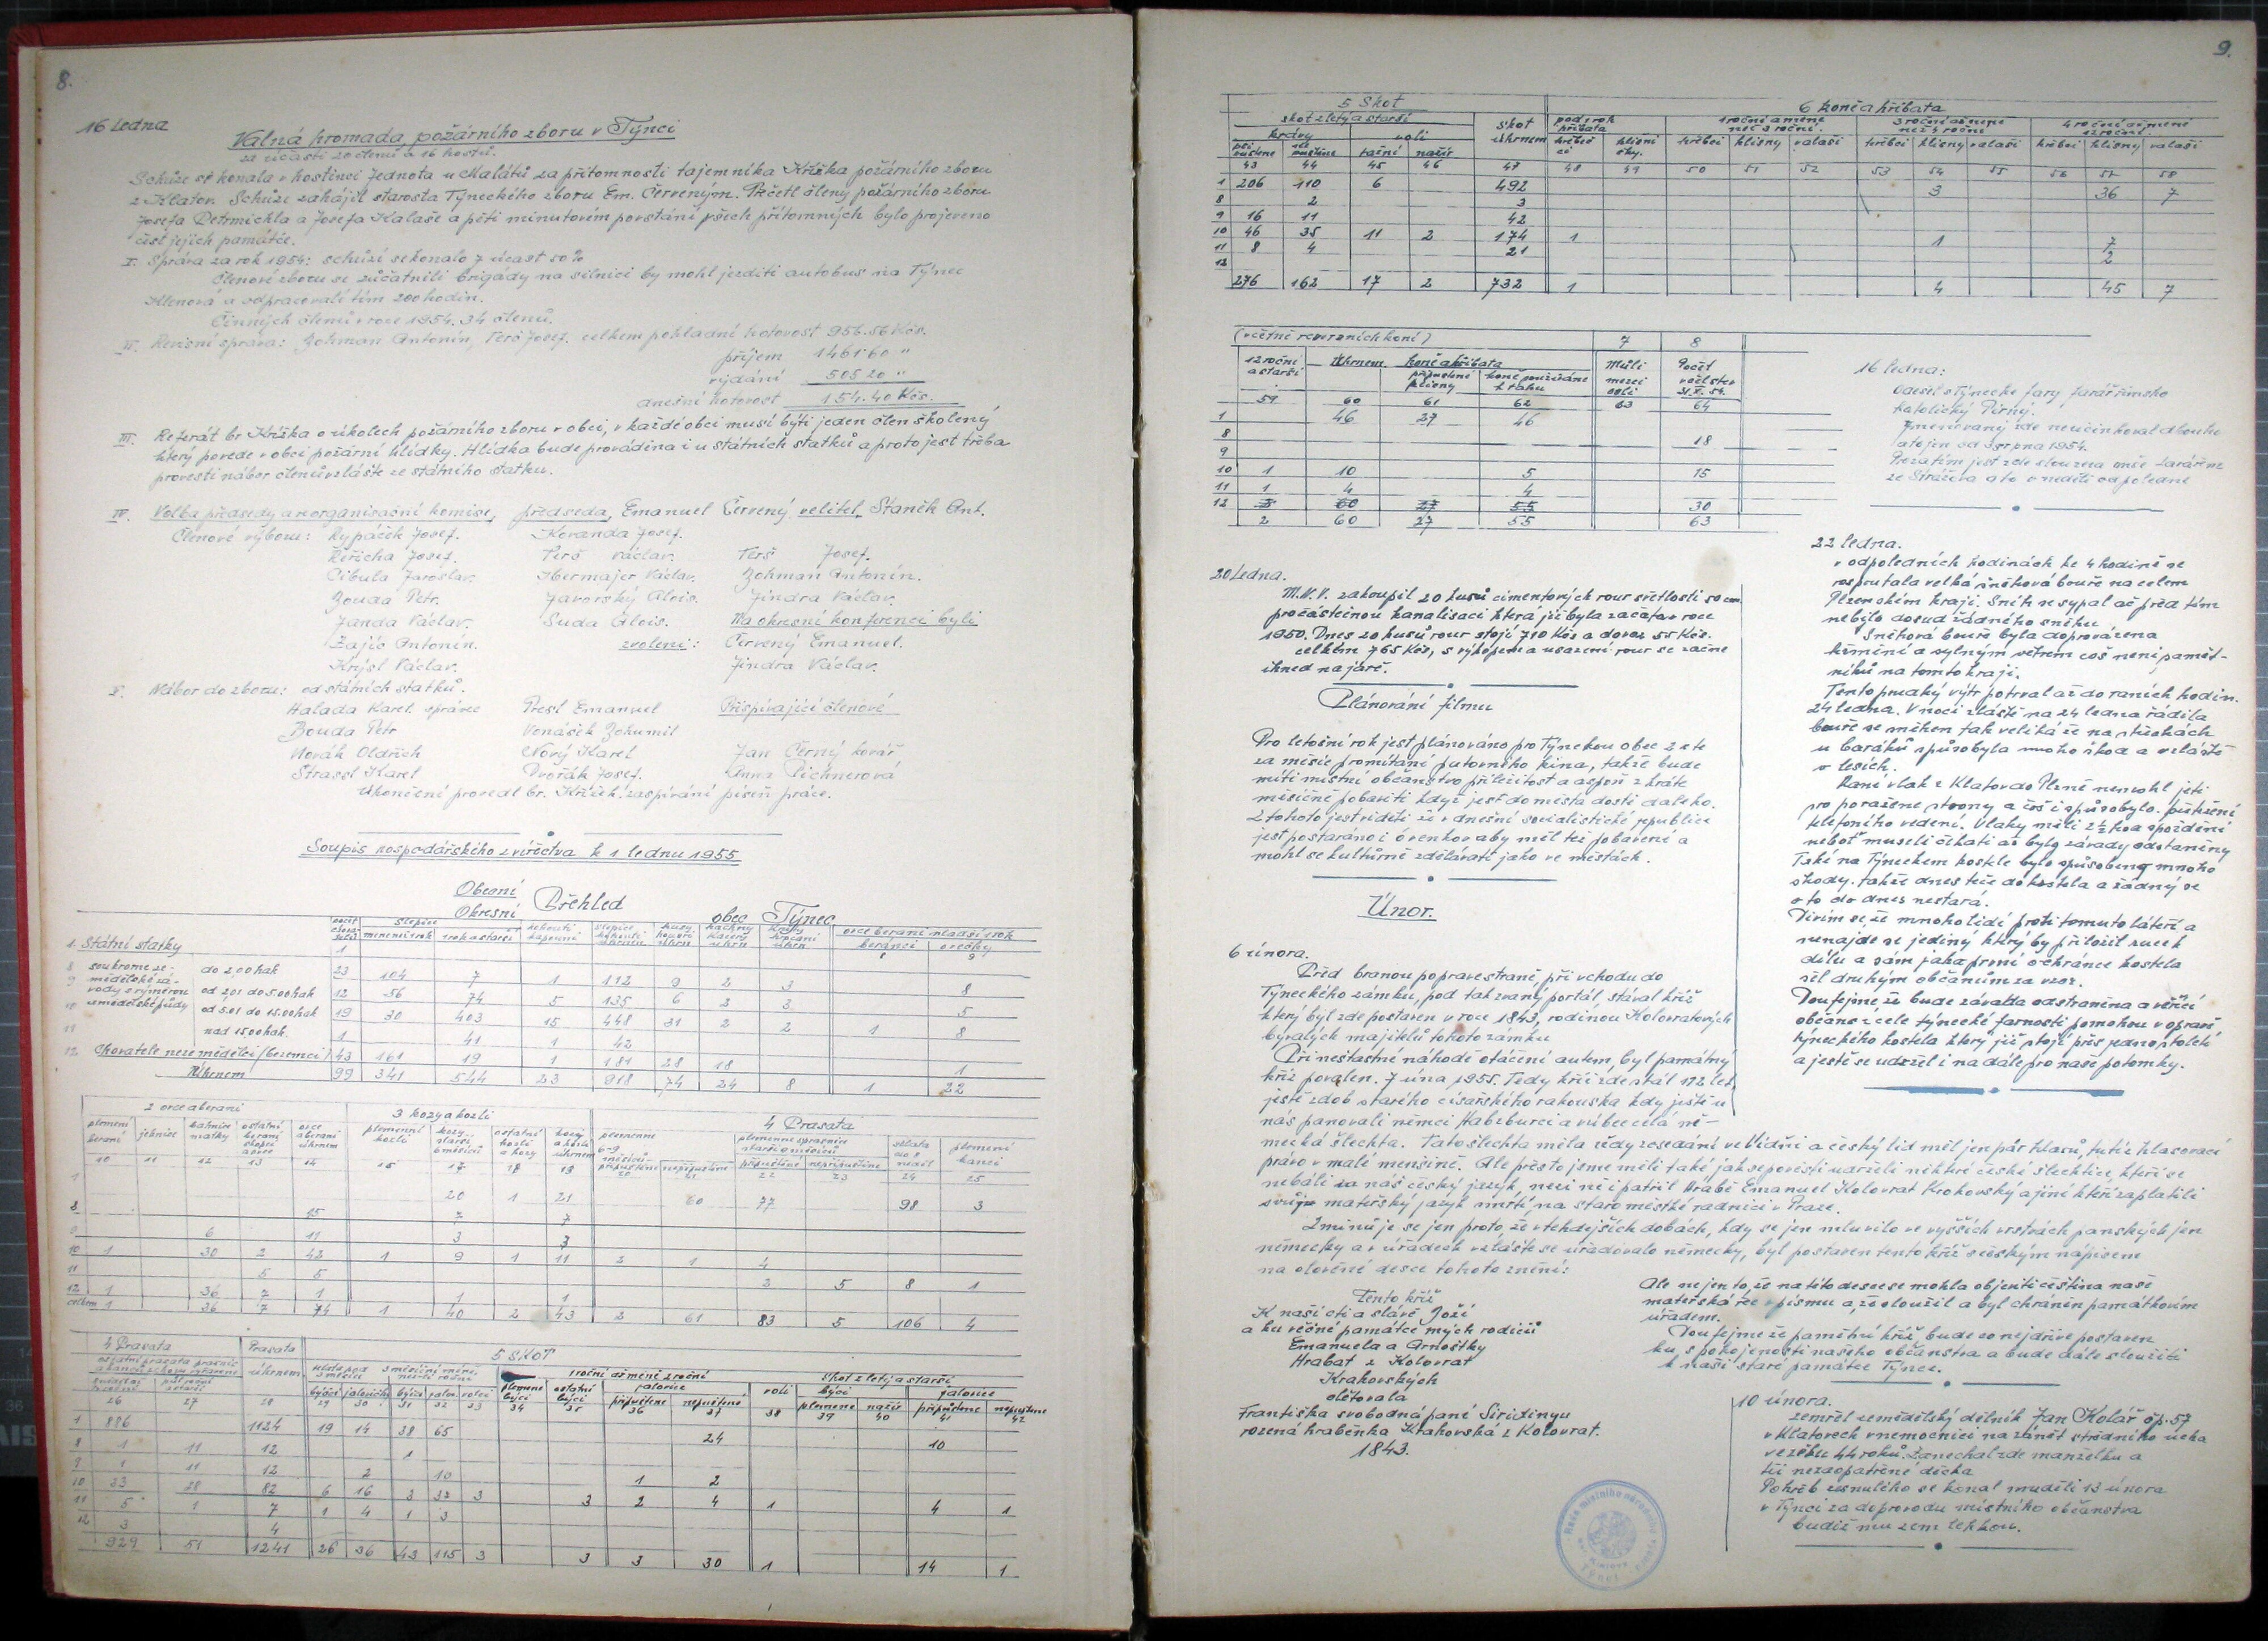 8.
16 ledna
Valná hromada požárního sboru v Týnci
za účasti 20 členů a 16 hostů.
Schůze se konala v hostinci Jednota u Malátů za přítomnosti tajemníka Křížka požárního sboru
z Klatov. Schůzi zahájil starosta Týneckého sboru Em. Červeným. Přečetl členy požárního sboru
Josefa Detrmichla a Josefa Kalaše a pěti minutovém povstání všech přítomných bylo projeveno
čest jejich památce.
I. Správa za rok 1954: schůzí se konalo 7 účast 50%
Členové sboru se zúčatnili brigády na silnici by mohl jezditi autobus na Týnec
Klenová a odpracovali tím 200 hodin.
Činných členů v roce 1954. 34 členů.
II. Revisní správa: Zohman Antonín, Terš Josef. celkem pokladní hotovost 956.56 Kčs.
příjem 1461.60 "
vydání 505 20 "
dnešní hotovost 154.40 Kčs.
III. Referát br Křížka o úkolech požárního zboru v obci, v každé obci musí býti jeden člen školený
který povede v obci požární hlídky. Hlídka bude prováděna i u státních statků a proto jest třeba
provésti nábor členů zvláště ze státního statku.
IV. Volba předsedy a reorganisační komise, předseda, Emanuel Červený velitel, Staněk Ant.
Členové výboru: Rypáček Josef. Koranda Josef.
Řeřicha Josef. Terš Václav. Terš Josef.
Cibula Jaroslav. Ibermajer Václav. Zohman Antonín.
Zouda Petr. Javorský Alois. Jindra Václav.
Janda Václav. Suda Alois. Na okresní konferenci byli
Zajíc Antonín. zvoleni: Červený Emanuel.
Krýsl Václav. Jindra Václav.
V. Nábor do zboru: od státních statků.
Halada Karel správce Presl Emanuel Přispívající členové
Bouda Petr Vonásek Bohumil
Novák Oldřich Nový Karel Jan Černý kovář
Strassl Karel Dvořák Josef. Anna Pichnerová
Ukončení provedl br. Křížek, zaspívání píseň práce.
Soupis hospodářského zvířectva k 1 lednu 1955
Obecní
Okresní Přehled obec Týnec
slepice ovce berani mladší 1 rok
mlenší 1 rok 1 rok a starší beránci ovečky
1. Státní statky 1 8 9
8 soukromé ze- do 2,00 hak 23 104 7 1 112 9 2 3 8
9 mědělské zá- od 2,01 do 5.00 hak 12 56 74 5 135 6 2 3 5
10 vody s výměrou od 5.01 do 15.00 hak 19 30 403 15 448 31 2 2 1 8
zemědělské půdy
11 nad 15.00 hak. 1 41 1 42
12. Chovatelé nezemědělci (bezemci) 43 161 19 1 181 28 18 1
Úhrnem 99 341 544 23 918 74 24 8 1 22
2 ovce a berani 3 kozy a kozli 4 Prasata
plemení berani jehnice bahnice matky ostatní berani skopci a ovce ovce a berani úhrnem plemenní kozli kozy starší 6 měsíců ostatní kozli a kozy kozy a kozli úhrnem
10 11 12 13 14 15 17 18 19 20 21 22 23 24 25
1 20 1 21 60 77 98 3
8 15 7 7
9 6 11 3 3
10 1 30 2 42 1 9 1 11 2 1 4
11 5 5 2 5 8 1
12 1 36 2 1 1 1
celkem 1 36 7 74 1 40 2 43 2 61 83 5 106 4
4 Prasata Prasata 5 SKOT
úhrnem 1 roční až méně 2 roční Skot 2 letý a starší
býčci jalovičky býčci jalov. volci plemene býci ostatní býci jalovice voli býci jalovice
připuštěné nepuštěné plemene nažír připuštěné nepuštěné
26 27 28 29 30 31 32 33 34 35 36 37 38 39 40 41 42
1 886 1124 19 14 38 65 24 10
8 1 11 12 1
9 1 11 12 2 10 1 2
10 33 28 82 6 16 3 32 3 3 2 4 1 4 1
11 5 1 7 1 4 1 3
12 3 4
929 51 1241 26 36 43 115 3 3 3 30 1 14 1
9.
5 Skot 6 koně a hříbata
skot 2 letý a starší skot úhrnem pod 1 rok hříbata 1 roční a méně než 3 roční. 3 roční a méně než 4 roční 4 roční a méně 12 roční
krávy voli hřebci klisny valaši hřebci klisny valaši hřebci klisny valaši
tažní nažír
43 44 45 46 47 48 49 50 51 52 53 54 55 56 57 58
1 206 110 6 492 3 36 7
8 2 3
9 16 11 42
10 46 35 11 2 174 1 1 7
11 8 4 21 2
12
276 162 17 2 732 1 4 45 7
(včetně reversních koní) 7 8
12 roční a starší Úhrnem koně a hříbata Muli mezci osli Počet včelstev 31.X. 54.
připuštěné klisny koně používáné k tahu
59 60 61 62 63 64
1 46 27 46
8 18
9
10 1 10 5 15
11 1 4 4
12 2 60 27 55 30
2 60 27 55 63
16 ledna:
Odešel z Týnecké fary farář římsko
katolický Pirný.
Jmenovaný zde neúčinkoval dlouho
a to jen od srpna 1954.
Prozatím jest zde sloužena mše farářem
ze Strážova a to v neděli odpoledne
20 ledna.
M.N.V. zakoupil 20 kusů cimentových rour světlosti 50 cm
pro částečnou kanalisaci která již byla začata v roce
1950. Dnes 20 kusů rour stojí 710 Kčs a dovoz 55 Kčs.
celkem 765 Kčs, s výkopem a usazení rour se začne
ihned na jaře.
Plánování filmu
Pro letošní rok jest plánováno pro Týnckou obec 2 x te
za měsíc promítání putovního kina, takže bude
míti místní občanstvo příležitost a aspoň 2 krát
měsíčně pobaviti když jest do města dosti daleko.
Z tohoto jest viděti že v dnešní socialistické republice
jest postaráno i o venkov aby měl též pobavení a
mohl se kulturně zdělávati jako ve městách.
22 ledna.
v odpoledních hodinách ke 4 hodině se
rozpoutala velká sněhová bouře na celém
Plzenském kraji. Sníh se sypal ač před tím
nebylo dosud žádného sněhu
Sněhová bouře byla doprovázena
hřmění a sylným větrem což není pamět-
níků na tomto kraji.
Tento prudký výtr potrval až do raních hodin.
24 ledna. V noci zláště na 24 ledna řádila
bouře se sněhem tak veliká že na střechách
u baráků způsobyla mnoho škod a zvláště
v lesích.
Rané vlak z Klatov do Plzně nemohl jeti
pro poražené stromy a což i způsobylo. přetržení
telefoního vedení. Vlaky měli 2½ hod spoždění
neboť museli čekati až byly závady odstaněny
Také na Týneckem kostele bylo způsobeno mnoho
škody. takže dnes teče do kostela a žádný se
o to do dnes nestará.
Divím se, že mnoho lidí proti tomuto láteří a
nenajde se jediný který by přiložil ruce k
dílu a sám jako první ochránce kostela
šel druhým občanům za vzor.
Doufejme že bude závada odstraněna a věřící
občané z celé týnecké farnosti pomohou v opravě,
týneckého kostela který již stojí přes jedno století
a ještě se udržel i na dále pro naše potomky.
Únor.
6 února.
Před branou po pravé straně, při vchodu do
Týneckého zámku, pod tak zvaný portál, stával kříž
který byl zde postaven v roce 1843, rodinou Kolovratových
bývalých majitelů tohoto zámku
Při neštastné náhodě otáčení autem, byl památný
kříž povalen. 7 úna 1955. Tedy kříž zde stál 112 let
ještě z dob starého císařského rakouska kdy ještě u
nás panovali němci Habzburci a vůbec celá ně-
mecká šlechta. Tato šlechta měla vždy zasedání ve Vídni a český lid měl jen pár hlasů, tutíž hlasovací
právo v malé menšině. Ale přesto jsme měli také jak se pověsti udrželi někteří české šlechtice, kteří se
nebáli za náš český jazyk, mezi ně i patřil Hrabě Emanuel Kolovrat Krakovský a jiní kteří zaplatili
svůj mateřský jazyk smrtí, na staroměstké radnici v Praze.
Zminuje se jen proto, že v tehdejších dobách, kdy se jen mluvilo ve vyšších vrstvách panských jen
německy a v úřadech zvláště se úřadovalo německy, byl postaven tento kříž s českým nápisem
na olověné desce tohoto znění:
Tento kříž
K naší cti a slávě Boží
a ku věčné památce mých rodičů
Emanuela a Arnoštky
Hrabat z Kolovrat
Krakovských
obětovala
Františka svobodná paní Siritinyu
rozená hraběnka Krakovská z Kolovrat.
1843.
Ale ne jen to, že na této desce se mohla objeviti čeština naše
mateřská řeč v písmu a, že sloužil a byl chráněn památkovím
úřadem.
Doufejme že pamětní kříž bude co nejdříve postaven
ku spokojenosti našeho občanstva a bude dále sloužiti
k naší staré památce Týnce.
10 února.
zemřel zemědělský dělník Jan Kolář čp. 57
v Klatovech v nemocnici na zánět středního ucha
ve věku 44 roků. Zanechal zde manželku a
tři nezaopatřené děcka
Pohřeb zesnulého se konal v neděli 13 února
v Týnci za doprovodu místního občanstva
budiž mu zem lehkou.
Rada místního národního výboru
Týnec